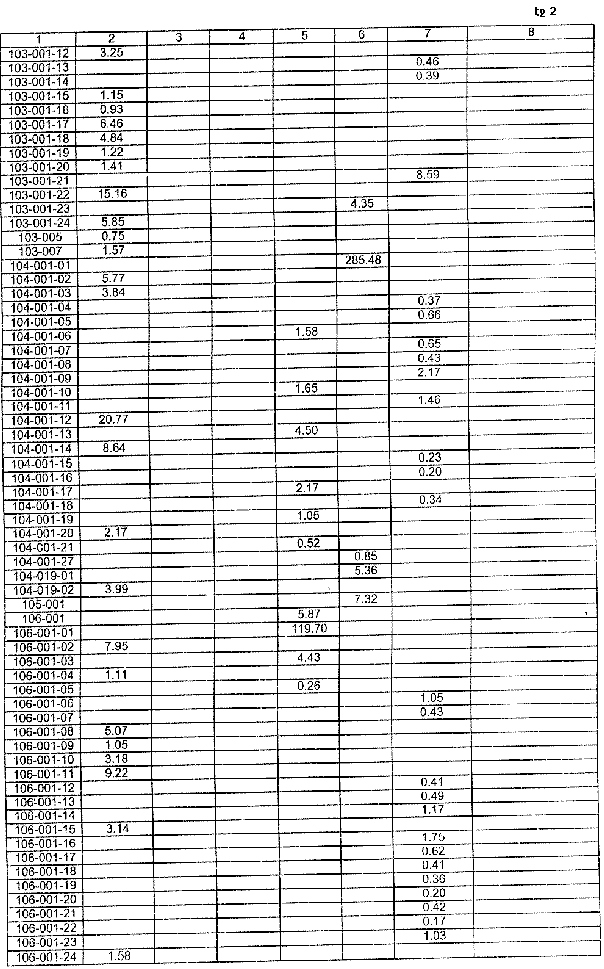 tp 2
1 2 3 4 5 6 7 8
103-001-12 3.25
103-001-13 0.46
103-001-14 0.39
103-001-15 1.15
103-001-16 0.93
103-001-17 6.46
103-001-18 4.84
103-001-19 1.22
103-001-20 1.41
103-001-21 8.59
103-001-22 15.16
103-001-23 4.35
103-001-24 5.85
103-005 0.75
103-007 1.57
104-001-01 285.48
104-001-02 5.77
104-001-03 3.84
104-001-04 0.37
104-001-05 0.66
104-001-06 1.58
104-001-07 0.65
104-001-08 0.43
104-001-09 2.17
104-001-10 1.65
104-001-11 1.46
104-001-12 20.77
104-001-13 4.50
104-001-14 8.64
104-001-15 0.23
104-001-16 0.20
104-001-17 2.17
104-001-18 0.34
104-001-19 1.05
104-001-20 2.17
104-001-21 0.52
104-001-27 0.85
104-019-01 5.36
104-019-02 3.99
105-001 7.32
106-001 5.87
106-001-01 119.70
106-001-02 7.95
106-001-03 4.43
106-001-04 1.11
106-001-05 0.26
106-001-06 1.05
106-001-07 0.43
106-001-08 5.07
106-001-09 1.05
106-001-10 3.18
106-001-11 9.22
106-001-12 0.41
106-001-13 0.49
106-001-14 1.17
106-001-15 3.14
106-001-16 1.75
106-001-17 0.62
106-001-18 0.41
106-001-19 0.36
106-001-20 0.20
106-001-21 0.42
106-001-22 0.17
106-001-23 1.03
106-001-24 1.58